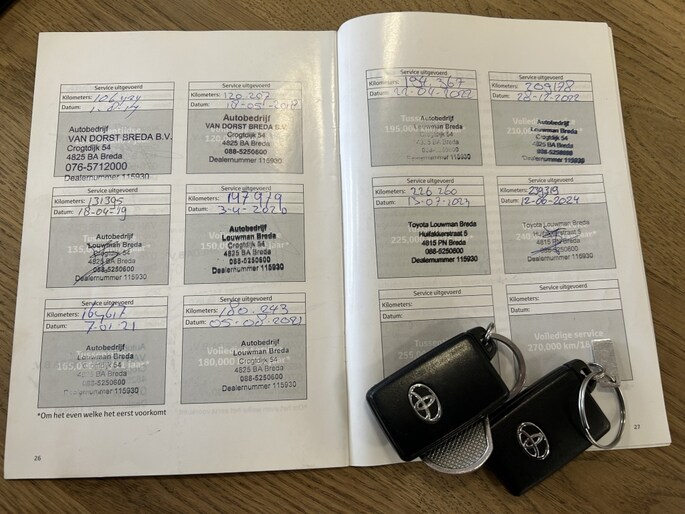 Service uitgevoerd
Kilometers:
Datum:
Autobedrijf
VAN DORST BREDA B.V.
Crogtdijk 54
4825 BA Breda
076-5712000
Dealernummer 115930
Service uitgevoerd
Kilometers: 120.207
Datum: 18-05-2017
Autobedrijf
VAN DORST BREDA B.V.
Crogtdijk 54
4825 BA Breda
088-5250600
Dealernummer 115930
Service uitgevoerd
Kilometers: 131395
Datum: 18-04-19
Autobedrijf
Louwman Breda
Crogtdijk 54
4825 BA Breda
088-5250600
Dealernummer 115930
Service uitgevoerd
Kilometers: 147919
Datum: 3-4-2020
Autobedrijf
Louwman Breda
Crogtdijk 54
4825 BA Breda
088-5250600
Dealernummer 115930
Service uitgevoerd
Kilometers: 164617
Datum: 7-01-21
Autobedrijf
Louwman Breda
Crogtdijk 54
4825 BA Breda
088-5250600
Dealernummer 115930
Service uitgevoerd
Kilometers: 180.243
Datum: 05-08-2021
Volledige
180,000
Autobedrijf
Louwman Breda
Crogtdijk 54
4825 BA Breda
088-5250600
Dealernummer 115930
*Om het even welke het eerst voorkomt
26
Service uitgevoerd
Kilometers: 194.367
Datum: 22-04-2022
195,000
Autobedrijf
Louwman Breda
Crogtdijk 54
4825 BA Breda
Dealernummer 115930
Service uitgevoerd
Kilometers: 209178
Datum: 28-12-2022
210,000
Autobedrijf
Louwman Breda
Crogtdijk 54
4825 BA Breda
088-5250600
Dealernummer 115930
Service uitgevoerd
Kilometers: 226 260
Datum: 13-07-2023
225,000
Toyota Louwman Breda
Huifakkerstraat 5
4815 PN Breda
088-5250600
Dealernummer 115930
Service uitgevoerd
Kilometers: 239319
Datum: 12-06-2024
240,000
Toyota Louwman Breda
Huifakkerstraat 5
4815 PN Breda
088-5250600
Dealernummer 115930
Service uitgevoerd
Kilometers:
Datum:
255,000
Service uitgevoerd
Kilometers:
Datum:
Volledige service
270,000 km/
27